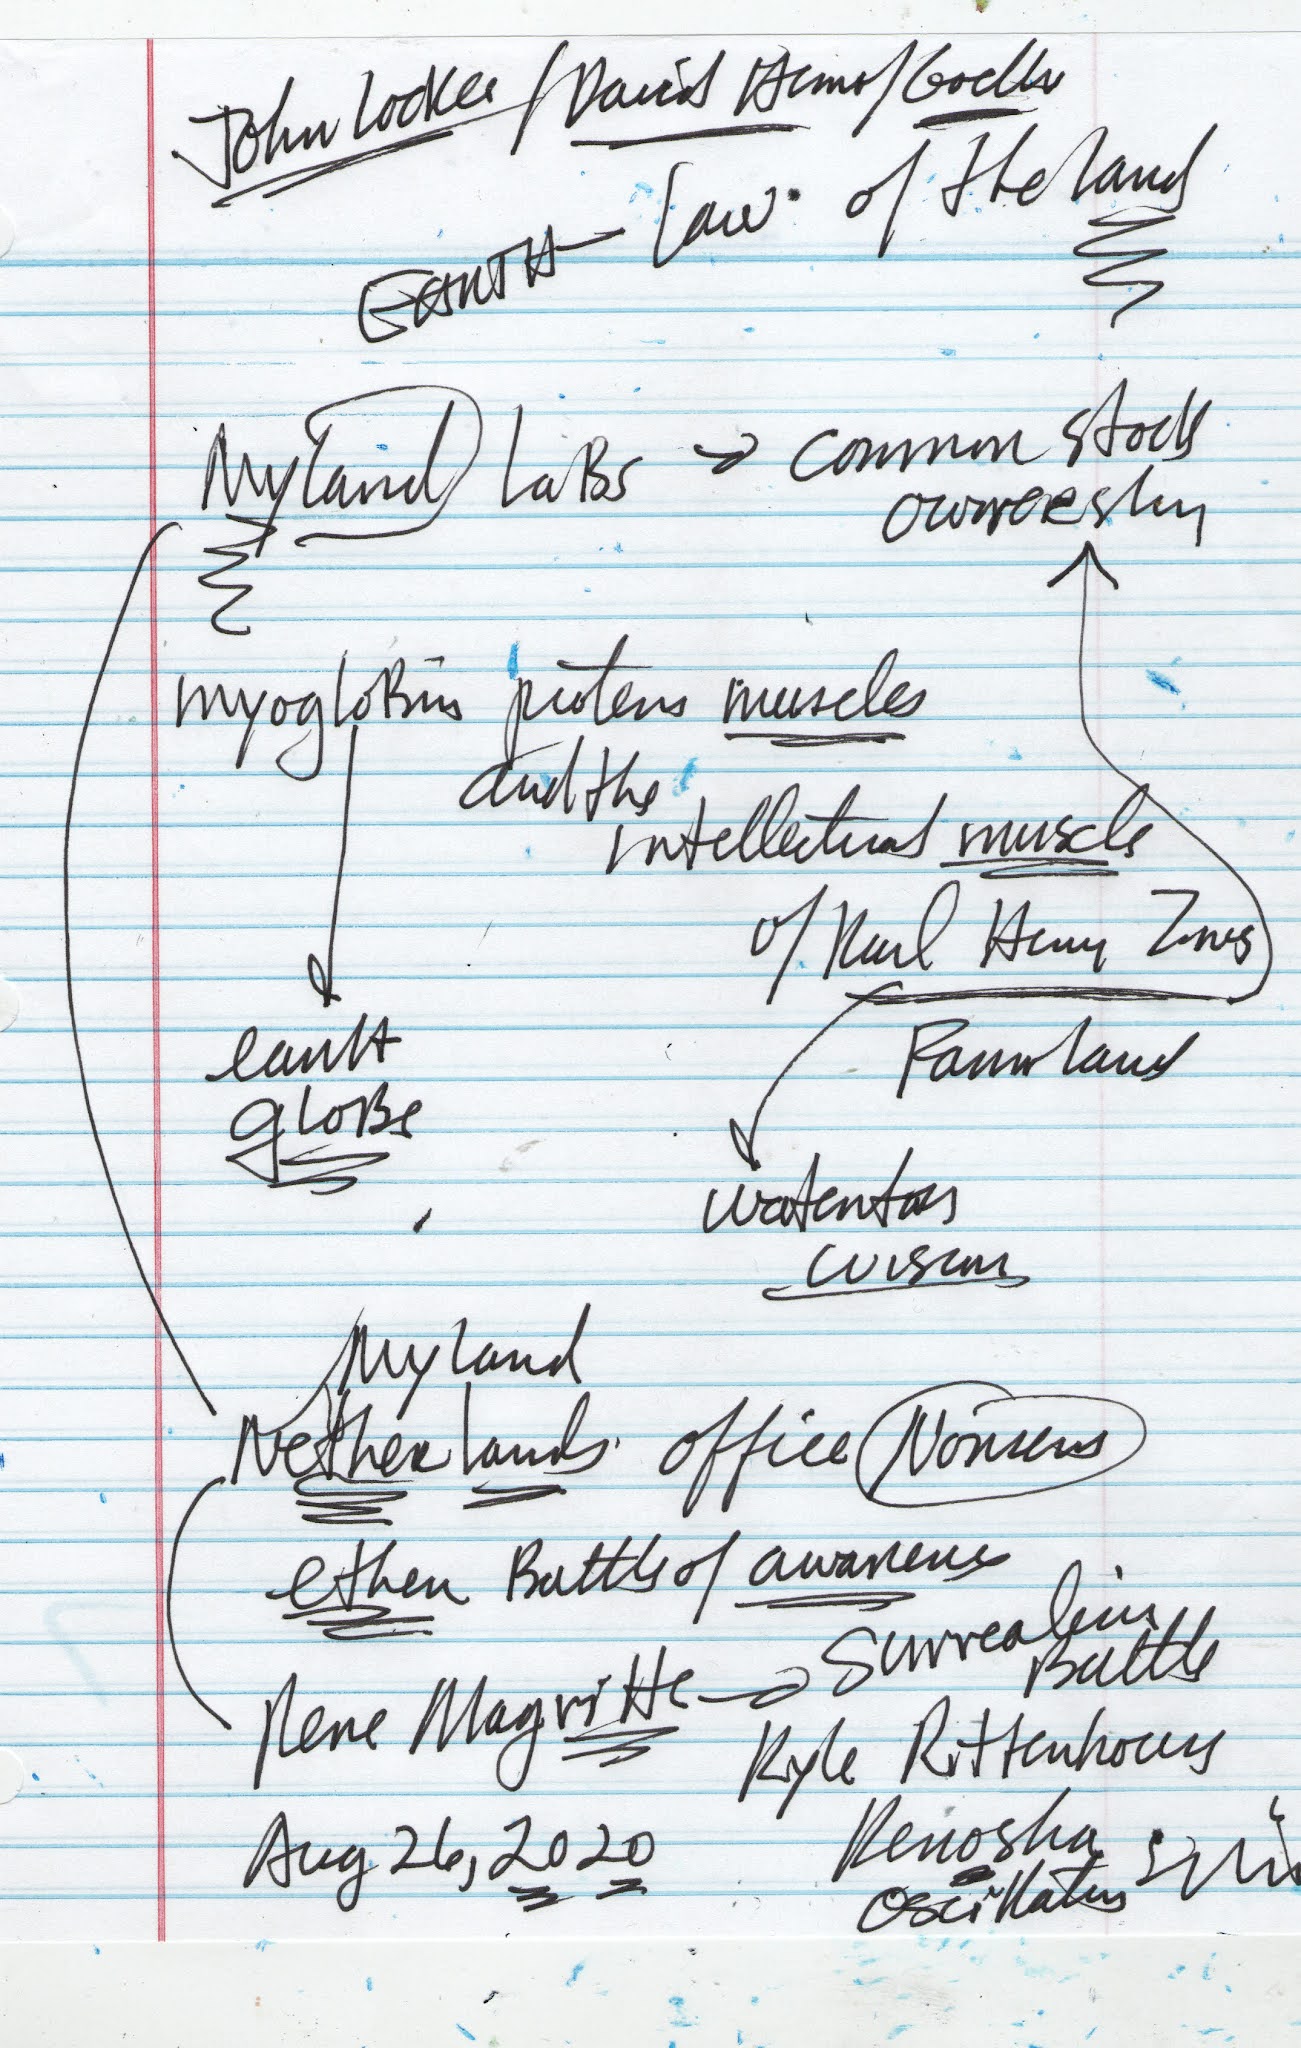 John Locke / David Hume / Goethe
EARTH - Law of the land
Myland Labs → common stock
ownership
myoglobin protein muscles
and the
intellectual muscle
of Karl Henry
Farmland
earth
globe
cuisine
Myland
Netherlands office Nonsens
ether Battle of awareness
Rene Magritte → Surrealism
Battle
Kyle Rittenhouse
Aug 26, 2020
Kenosha
oscillation